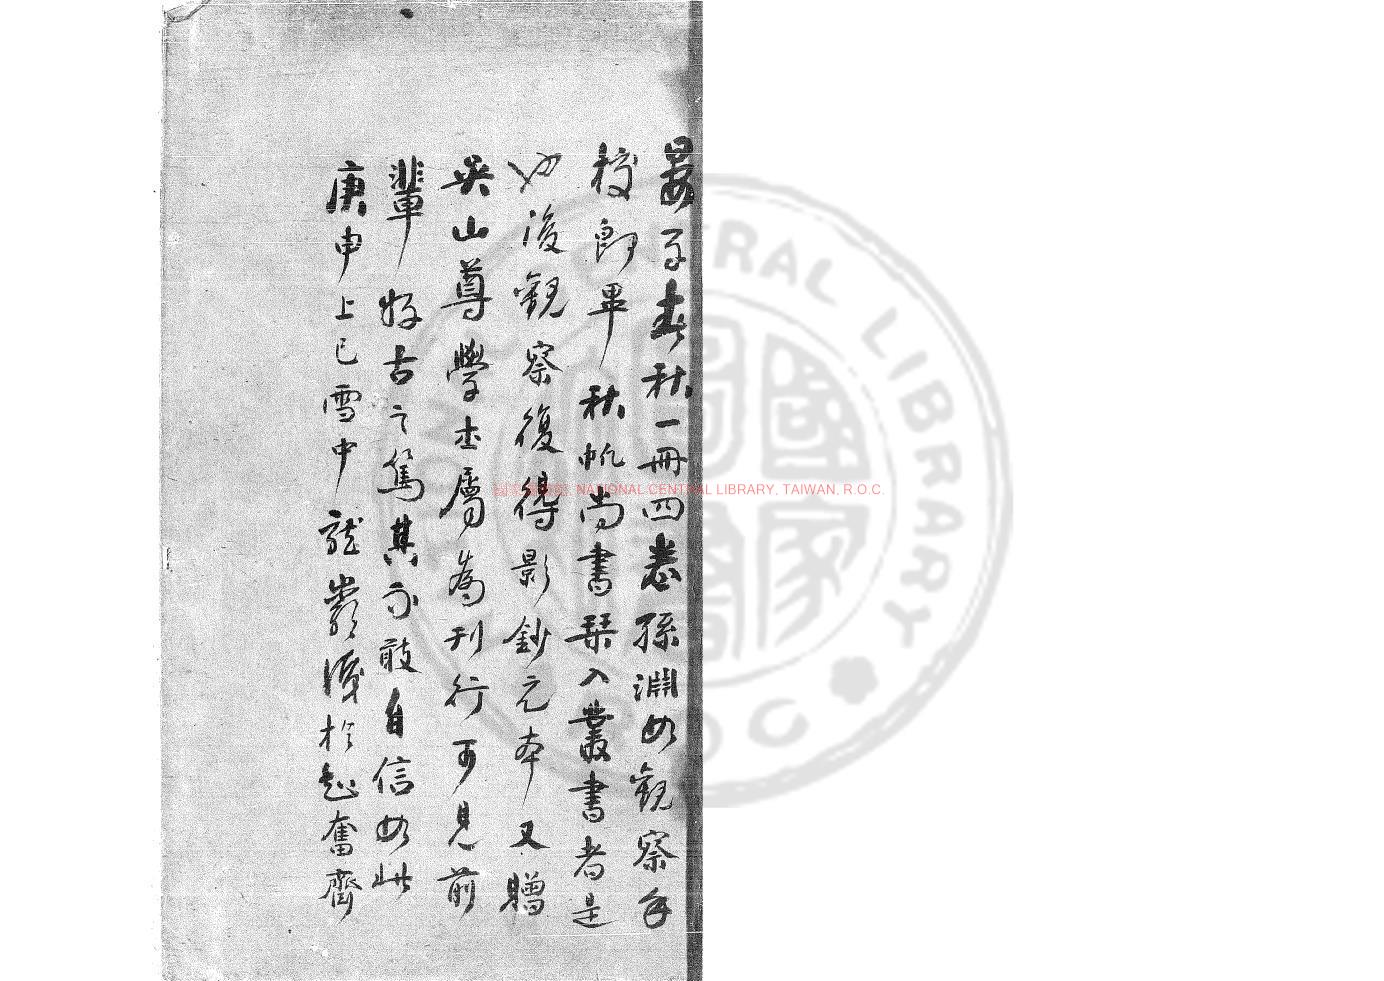 晏子春秋一冊四卷孫淵如觀察手
校即畢秋帆尚書栞入叢書者是
也後觀察復得影鈔元本又贈
吳山尊學士屬為刊行可見前
輩好古之篤其不敢自信如此
庚申上巳雪中龍巖識於起奮齋
國家圖書館 NATIONAL CENTRAL LIBRARY, TAIWAN, R.O.C.